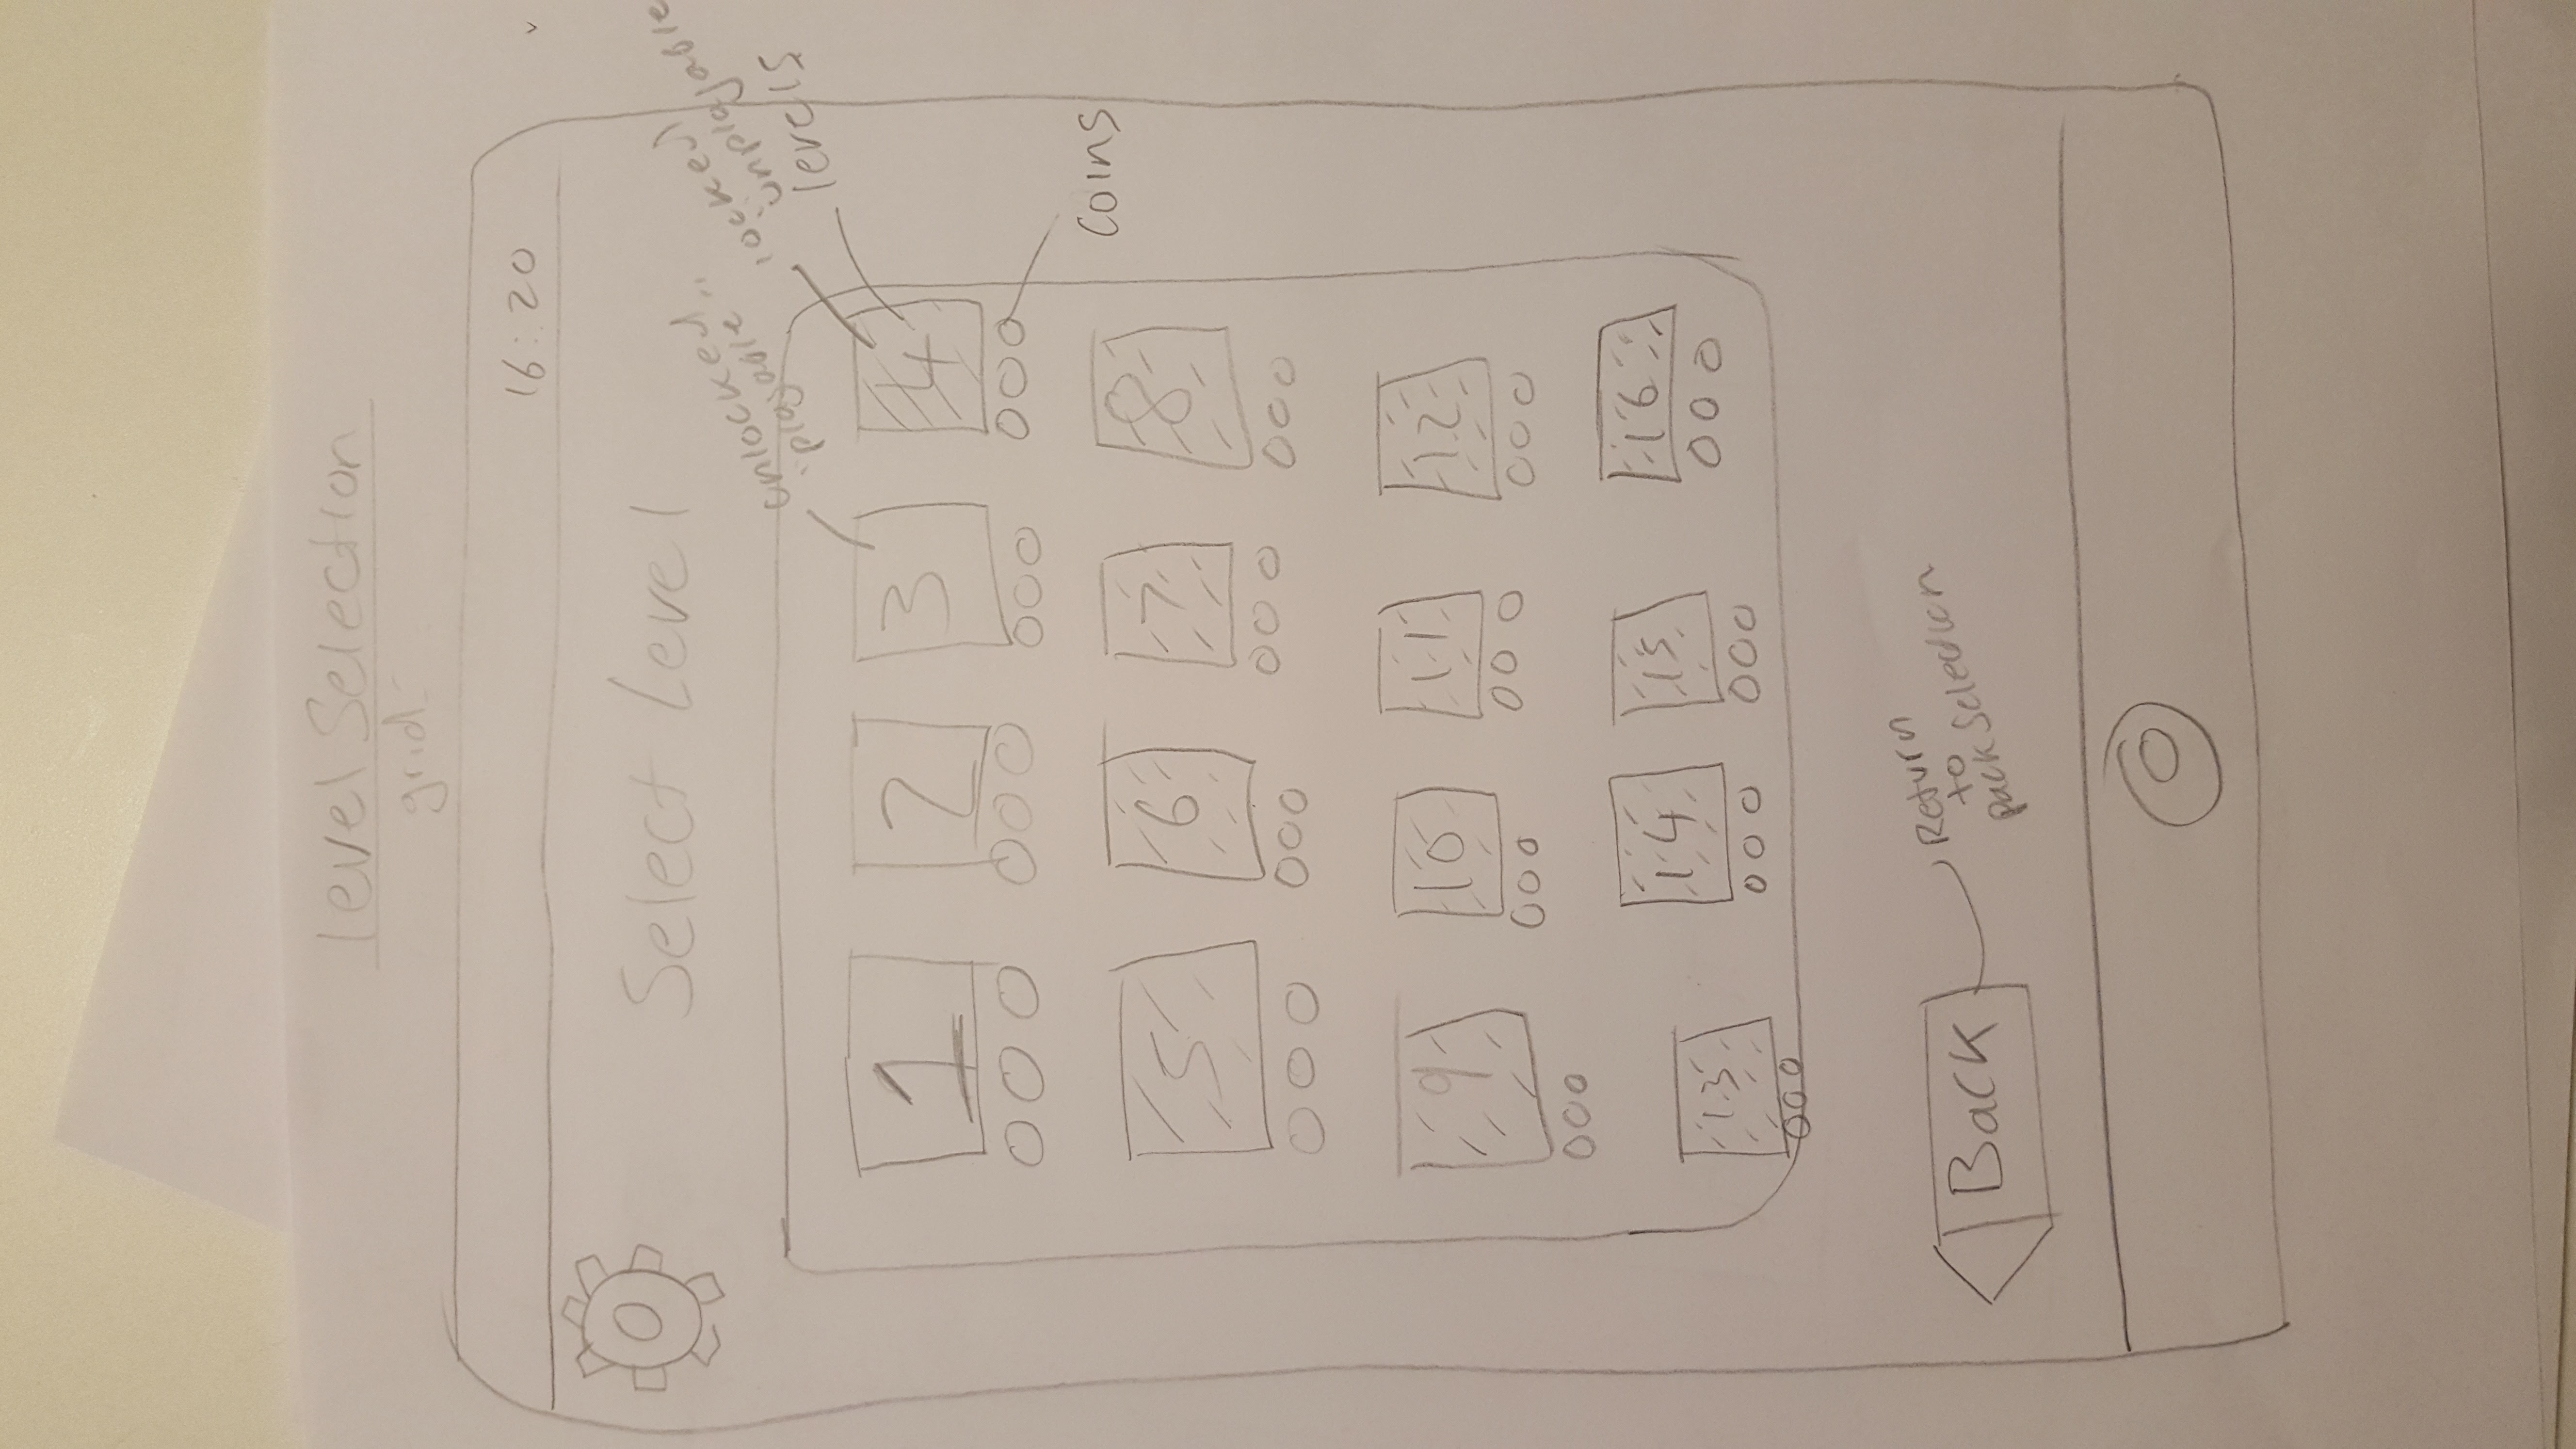 level Selection
grid
16:20
Select Level
unlocked
"playable"
locked
unplayable
levels
1 2 3 4
coins
5 6 7 8
9 10 11 12
13 14 15 16
Back
Return
to
pack Selection